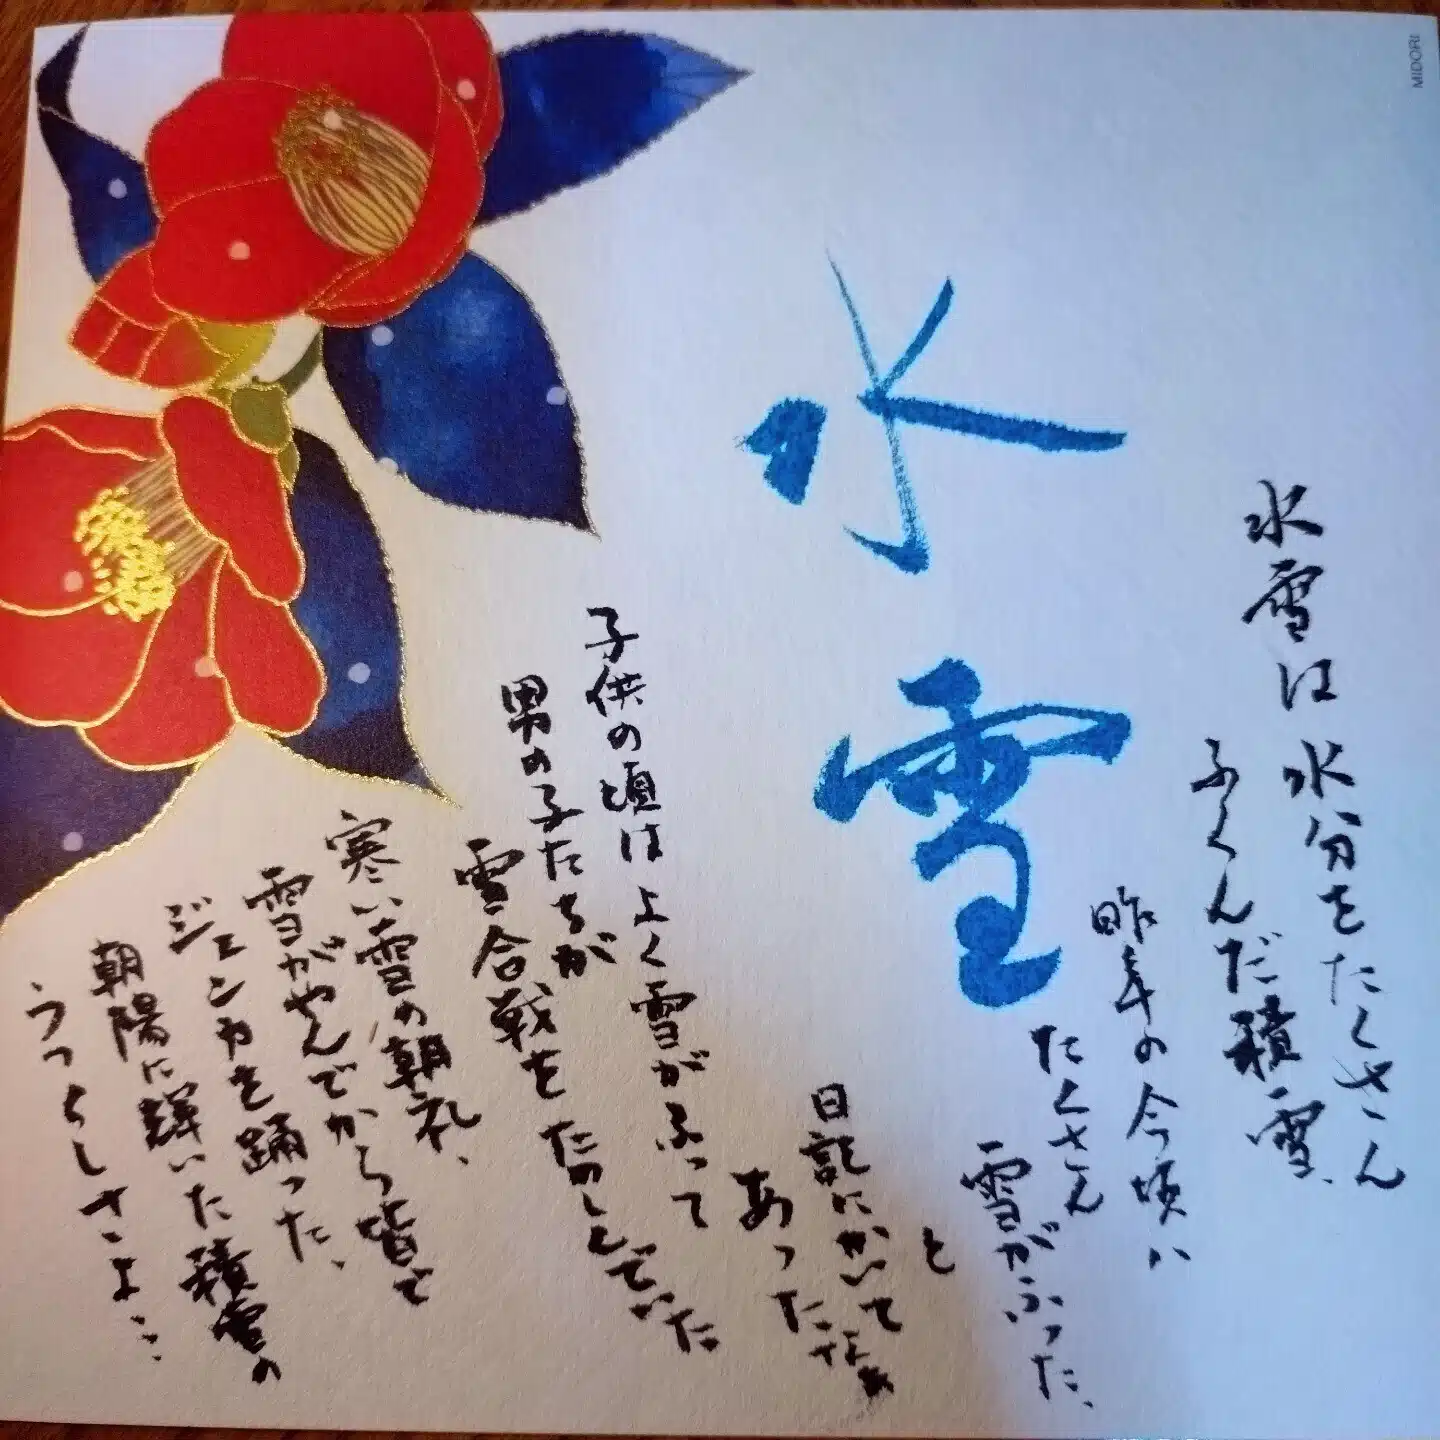 水雪
水雪は水分をたくさん
ふくんだ積雪、
昨年の今頃い
たくさん
雪がふった、
と
日記にかいて
あった
子供の頃はよく雪がふって
男の子たちが
雪合戦をたのしんでいた
寒い雪の朝礼、
雪がやんでから皆で
ジェンカを踊った、
朝陽に輝いた積雪の
うつくしさよ…
MIDORI